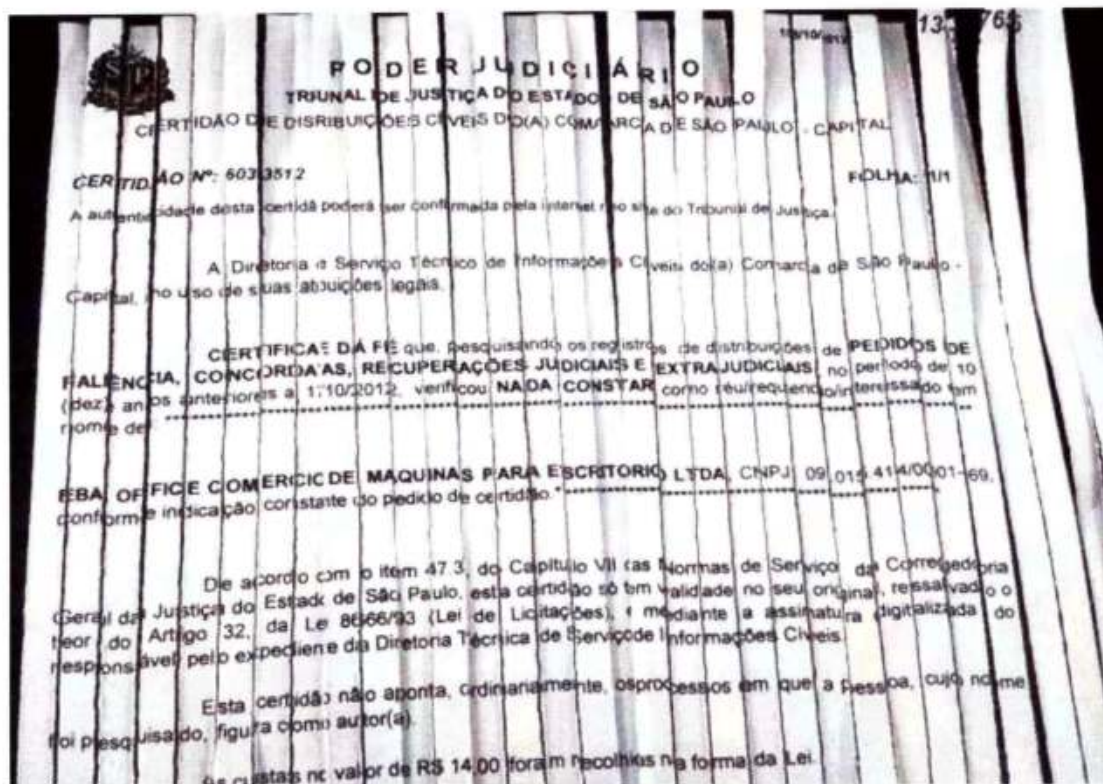 13 765
PODER JUDICIÁRIO
TRIUNAL DE JUSTIÇA DO ESTADO DE SÃO PAULO
CERTIDÃO DE DISRIBUIÇÕES CÍVEIS DO(A) COMARCA DE SÃO PAULO - CAPITAL
CERTIDÃO Nº: 6033512
FOLHA: 1/1
A autenticidade desta certidã poderá ser confirmada pela internet no site do Tribunal de Justiça.
A Diretoria Serviço Técnico de Informações Cíveis do(a) Comarca de São Paulo -
Capital, no uso de suas atbuições legais,
CERTIFICA E DÁ FÉ que, pesquisando os registros de distribuições de PEDIDOS DE
FALÊNCIA, CONCORDAAS, RECUPERAÇÕES JUDICIAIS E EXTRAJUDICIAIS, no período de 10
(dez) anos anteriores a 1/10/2012, verificou NADA CONSTAR como réu/requerido/interessado em
nome de: ********************
EBA OFFICE COMERCIC DE MAQUINAS PARA ESCRITORIO LTDA, CNPJ 09.015.414/0001-69,
conforme indicação constate do pedido de certidão.********************
De acordo com o item 47.3, do Capítulo VII as Normas de Serviço da Corregedoria
Geral da Justiça do Estado de São Paulo, esta certidão só tem validade no seu original, ressalvado o
teor do Artigo 32, da Le 8666/93 (Lei de Licitações), mediante a assinatura digitalizada do
responsável pelo expediente da Diretoria Técnica de Serviçode Informações Cíveis.
Esta certidão não aponta, ordinariamente, osprocessos em que a pessoa, cujo nome
foi pesquisado, figura como autor(a).
As custas no valor de R$ 14,00 foram recolhias na forma da Lei.